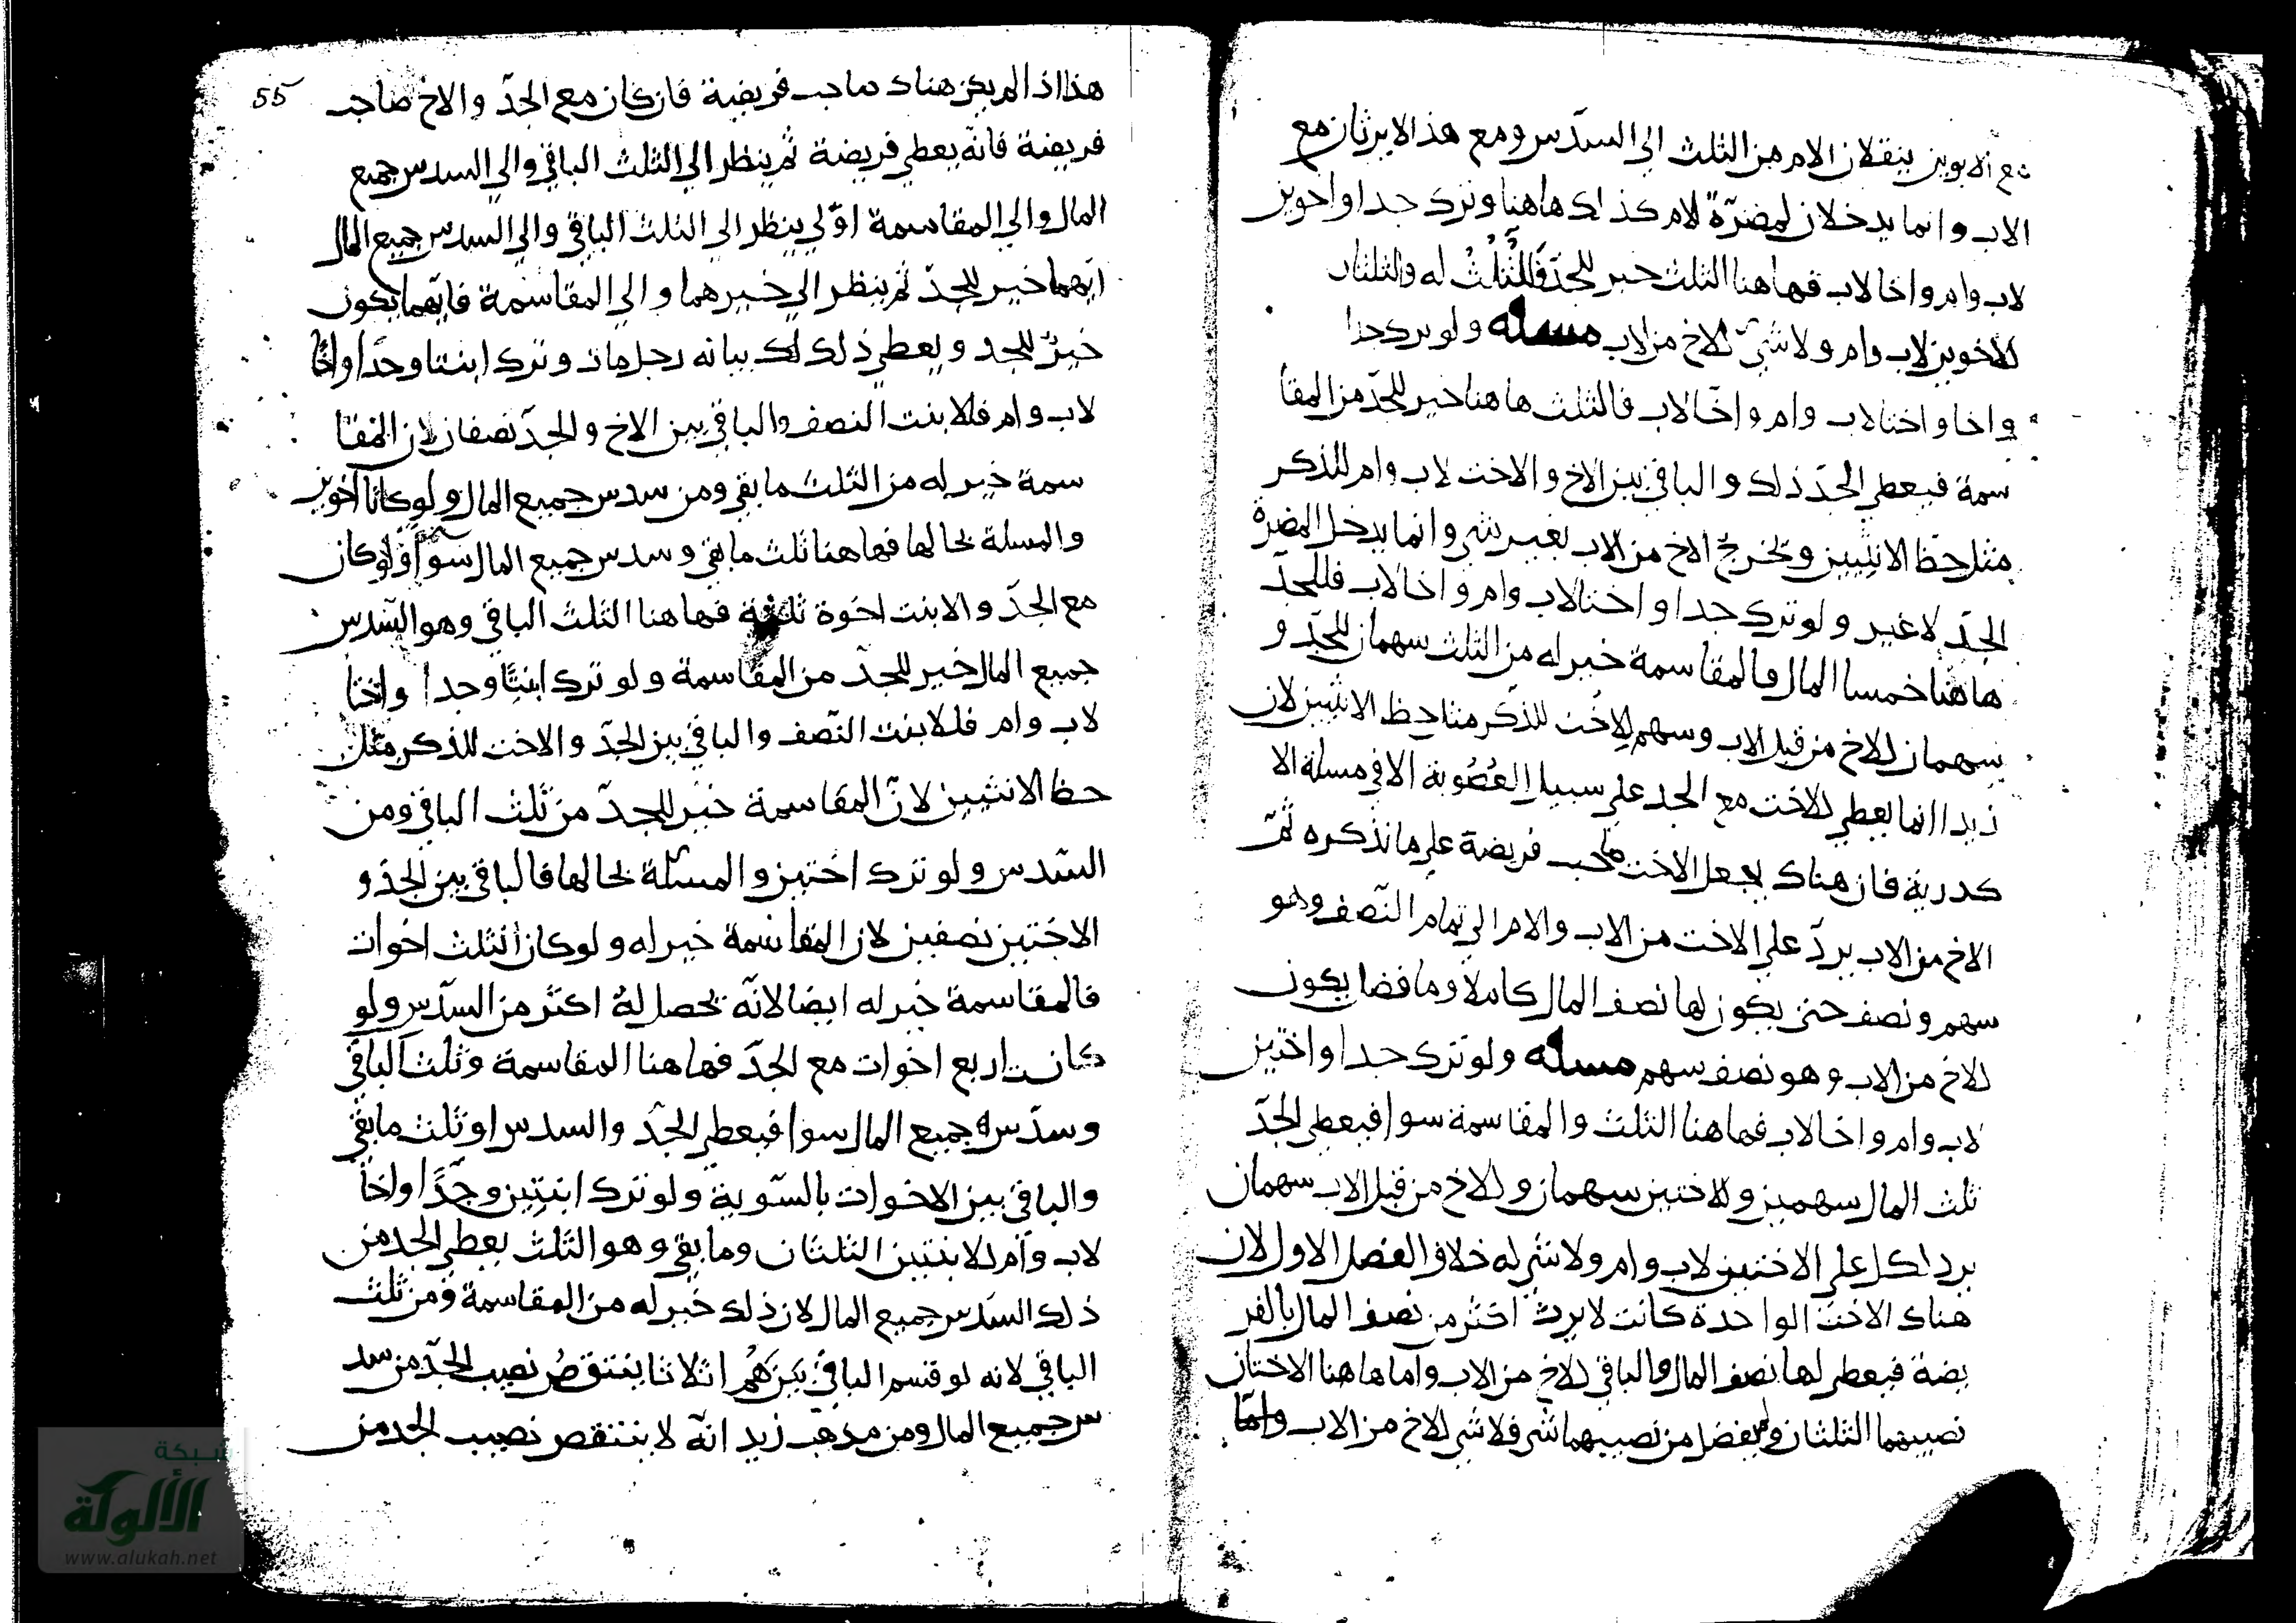 مع الابوين ينقلان الام من الثلث الى السدس ومع هذا لا يرثان مع
الاب وانما يدخلان لمضرّة الام كذلك هاهنا وترك جدا واخوين
لاب وام واخا لاب فهاهنا الثلث خير للجدّ فَالثُّلُثُ له والثلثان
للاخوين لاب وام ولا شيء للاخ من الاب مسله ولو ترك جدا
واخا واختا لاب وام واخا لاب فالثلث هاهنا خير للجدّ من المقا
سمة فيعطى الجدّ ذلك والباقي بين الاخ والاخت لاب وام للذكر
مثل حظ الانثيين ويخرج الاخ من الاب بغير شي وانما يدخل لمضرة
الجدّ لا غير ولو ترك جدا واختا لاب وام واخا لاب فللجدّ
هاهنا خمسا المال والمقاسمة خير له من الثلث سهمان للجدّ و
سهمان للاخ من قبل الاب وسهم لِلاخت للذكر مثل حظ الانثيين لان
زيدا انما يعطي للاخت مع الجد على سبيل العُصُوبة الا في مسلة الا
كدرية فان هناك يجعل الاخت صاحب فريضة على ما نذكره ثمّ
الاخ من الاب يردّ على الاخت من الاب والام الى تمام النّصف وهو
سهم ونصف حتى يكون لها نصف المال كاملا وما فضل يكون
للاخ من الاب وهو نصف سهم مسله ولو ترك جدا واختين
لاب وام واخا لاب فهاهنا الثلث والمقاسمة سوا فيعطى الجدّ
ثلث المال سهمين وللاختين سهمان وللاخ من قبل الاب سهمان
يرد الكل على الاختين لاب وام ولا شي له خلاف الفصل الاول لان
هناك الاخت الواحدة كانت لا يرث اكثر من نصف المال بالفر
يضة فيعطى لها نصف المال والباقي للاخ من الاب واما هاهنا الاختان
نصيبهما الثلثان ولم يفضل من نصيبهما شي فلا شي للاخ من الاب وامّا
55
هذا اذا لم يكن هناك صاحب فريضة فان كان مع الجدّ والاخ صاحب
فريضة فانّه يعطي فريضة ثم ينظر الى الثلث الباقي والى السدس جميع
المال والى المقاسمة اوّلى ينظر الى الثلث الباقي والى السدس جميع المال
ايّهما خير للجدّ ثم ينظر الى خيرهما والى المقاسمة فايّهما يكون
خيرٌ للجد ويعطي ذلك لك بيانه رجل مات وترك ابنتا وجدّا واخًا
لاب وام فللابنت النصف والباقي بين الاخ والجدّ نصفان لان المقا
سمة خير له من الثلث ما بقي ومن سدس جميع المال ولو كانا اخوين
والمسلة بحالها فهاهنا ثلث ما بقي وسدس جميع المال سوآ ولو كان
مع الجدّ والابنت اخوة ثلثة فهاهنا الثلث الباقي وهو السّدس
جميع المال خير للجدّ من المقاسمة ولو ترك ابنتًا وجدا واختا
لاب وام فللابنت النّصف والباقي بين الجدّ والاخت للذكر مثل
حظ الانثيين لانّ المقاسمة خير للجدّ من ثلث الباقي ومن
السّدس ولو ترك اختين والمسئلة بحالها فالباقي بين الجدّ و
الاختين نصفين لان المقاسمة خير له ولو كان الثلث اخوات
فالمقاسمة خير له ايضا لانّه يحصل لهُ اكثر من السدّس ولو
كانت اربع اخوات مع الجدّ فهاهنا المقاسمة وثلث الباقي
وسدّس جميع المال سوا فيعطى الجدّ والسدس او ثلث ما بقي
والباقي بين الاخوات بالسّوية ولو ترك ابنتين وجدًّا واخًا
لاب وأم للابنتين الثلثان وما بقي وهو الثلث يعطى الجد من
ذلك السدّس جميع المال لان ذلك خير له من المقاسمة ومن ثلث
الباقي لانه لو قسم الباقي بينهُم اثلاثا ينتقصُ نصيب الجدّ من سد
س جميع المال ومن مذهب زيد انّه لا ينتقص نصيب الجد من
شبكة
الألوكة
www.alukah.net